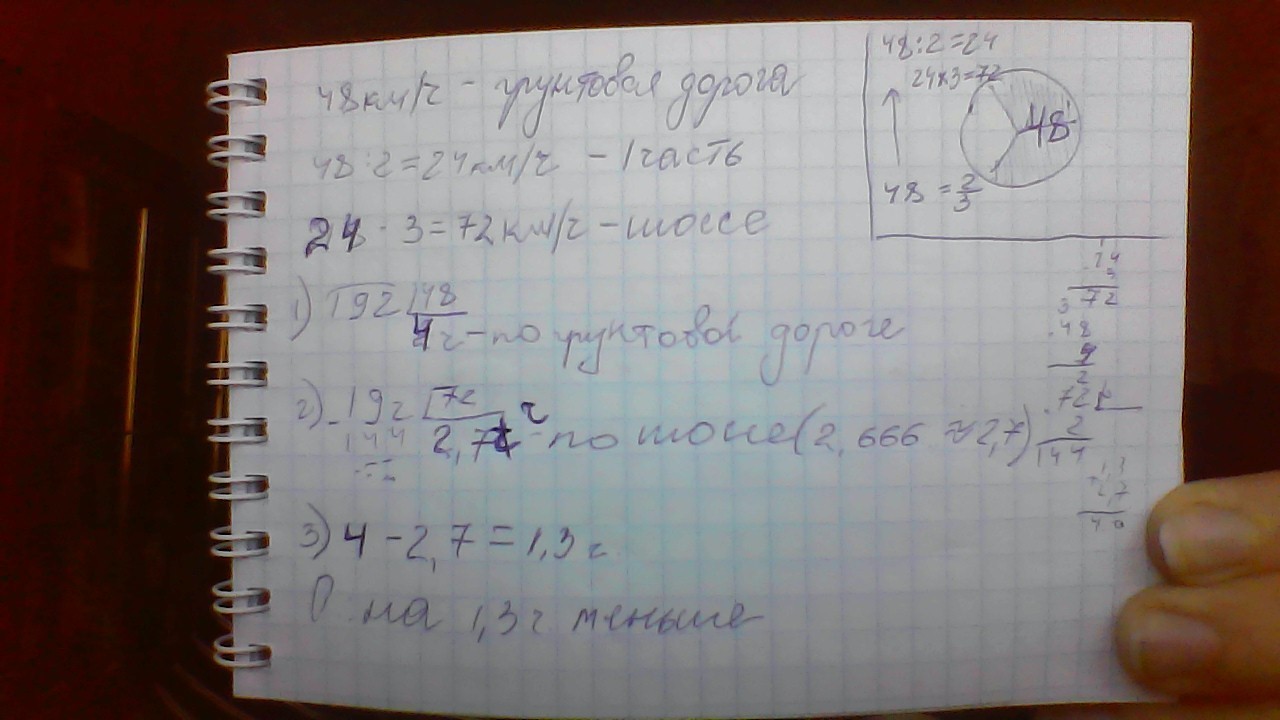 48км/ч - грунтовая дорога
48:2=24км/ч - 1часть
24 · 3=72км/ч - шоссе
1) 192 48
4ч-по грунтовой дороге
2) - 192 72
144 2,7 ч - по шоссе (2,666 ≈ 2,7)
3) 4 - 2,7 = 1,3 ч
О на 1,3ч меньше
48:2=24
24×3=72
48
48 = 2/3
72
48
72
2
144
1,3
2,7
4 0